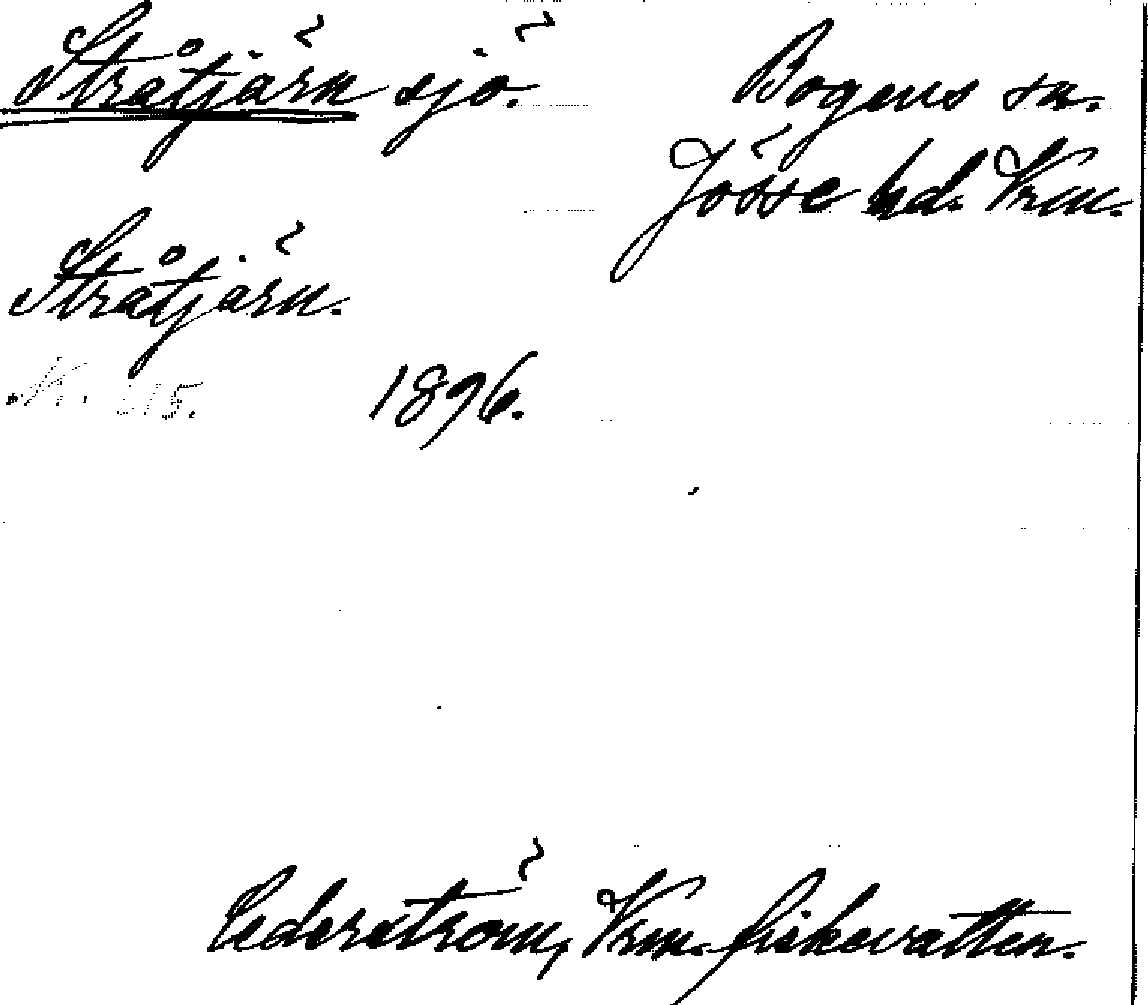 Stråtjärn sjö.
Bogens sn.
Jösse hd. Vrm.
Stråtjärn.
1896.
Cederström, Vrm. fiskevatten.